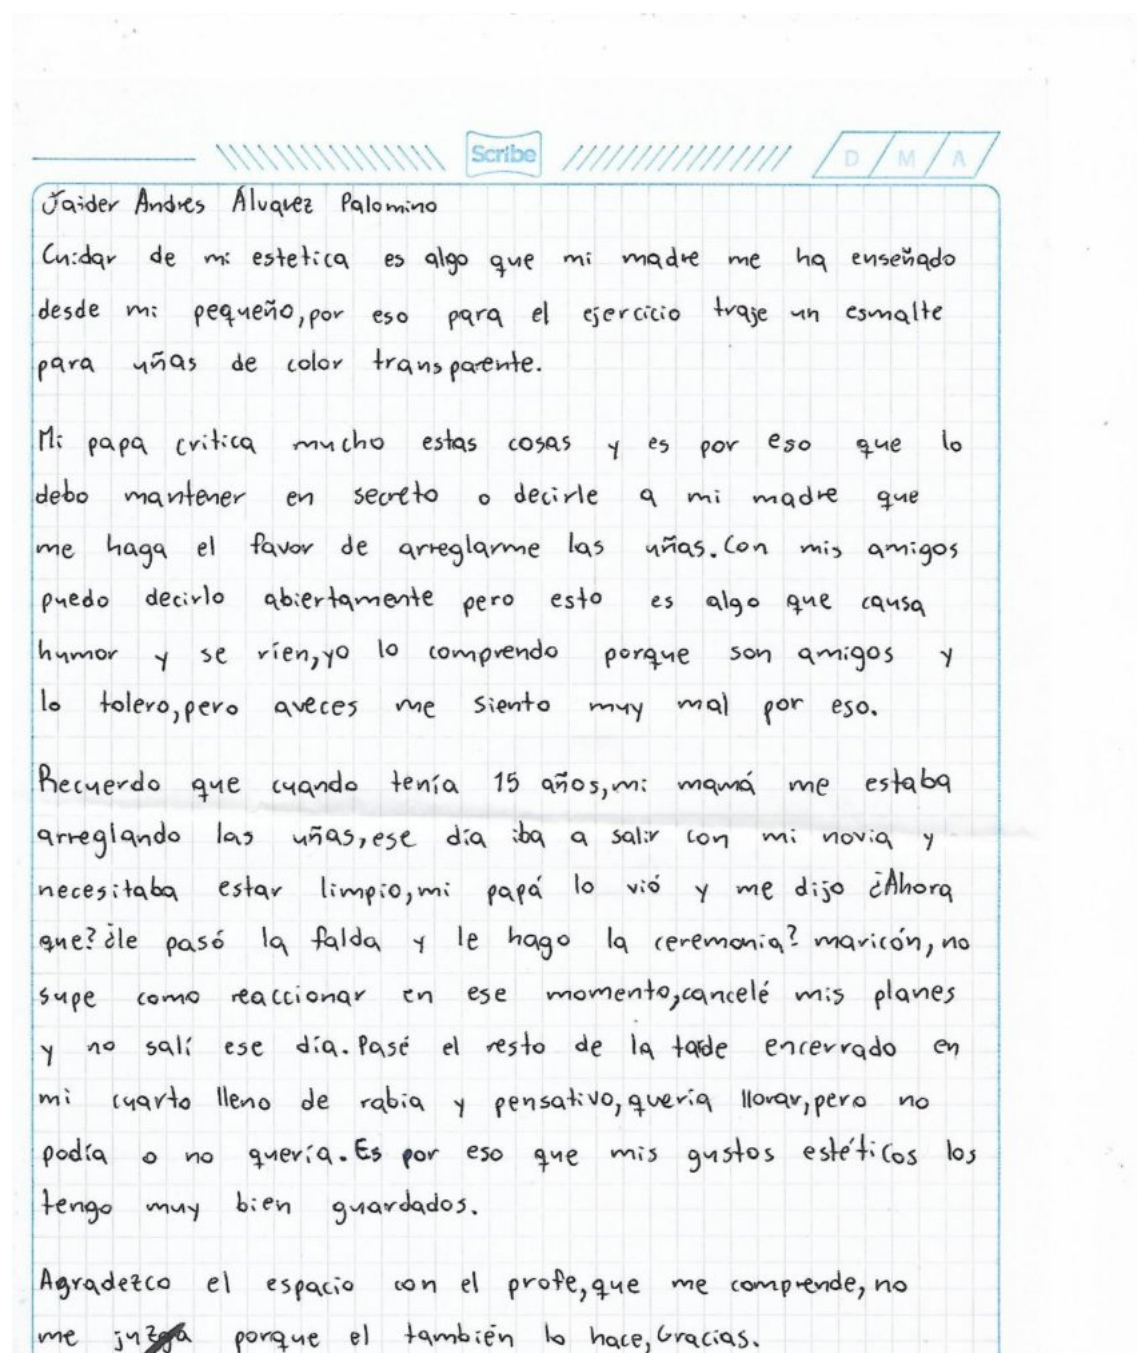 Scribe
D M A
Jaider Andres Álvarez Palomino
Cuidar de mi estetica es algo que mi madre me ha enseñado
desde mi pequeño, por eso para el ejercicio traje un esmalte
para uñas de color transparente.
Mi papa critica mucho estas cosas y es por eso que lo
debo mantener en secreto o decirle a mi madre que
me haga el favor de arreglarme las uñas. Con mis amigos
puedo decirlo abiertamente pero esto es algo que causa
humor y se ríen, yo lo comprendo porque son amigos y
lo tolero, pero aveces me siento muy mal por eso.
Recuerdo que cuando tenía 15 años, mi mamá me estaba
arreglando las uñas, ese día iba a salir con mi novia y
necesitaba estar limpio, mi papá lo vió y me dijo ¿Ahora
que? ¿le pasó la falda y le hago la ceremonia? maricón, no
supe como reaccionar en ese momento, cancelé mis planes
y no salí ese día. Pasé el resto de la tarde encerrado en
mi cuarto lleno de rabia y pensativo, quería llorar, pero no
podía o no quería. Es por eso que mis gustos estéticos los
tengo muy bien guardados.
Agradezco el espacio con el profe, que me comprende, no
me juzga porque el también lo hace, Gracias.